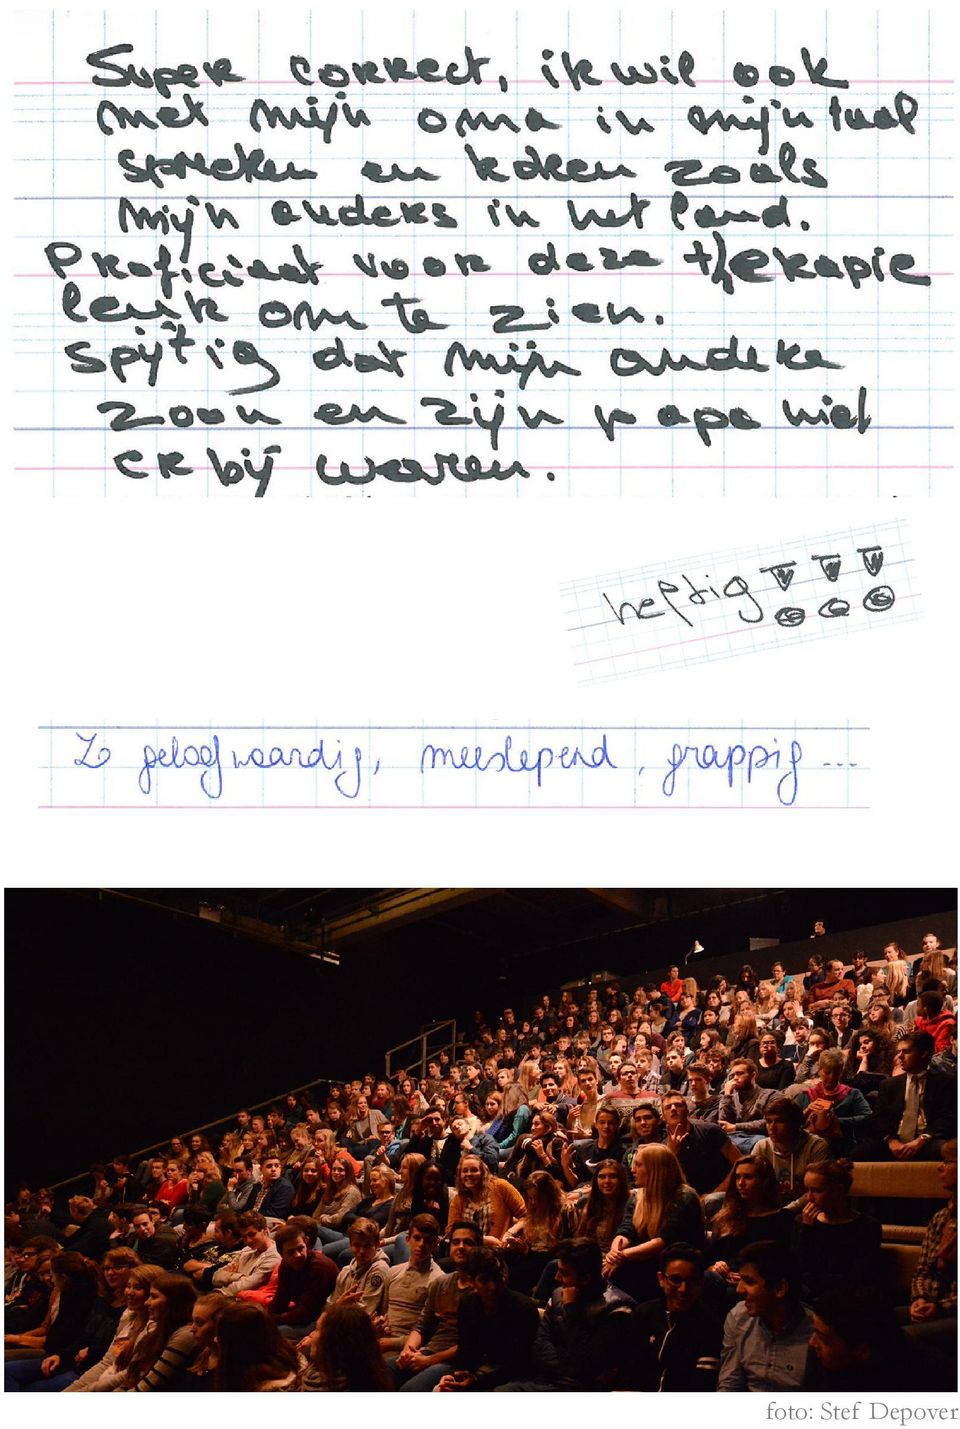 Super correct, ik wil ook
met mijn oma in mijn taal
spreken en koken zoals
mijn ouders in het land.
Proficiat voor deze therapie
leuk om te zien.
Spijtig dat mijn andere
zoon en zijn papa niet
er bij waren.
heftig!!!
Zo geloofwaardig, meeslepend, grappig...
foto: Stef Depover